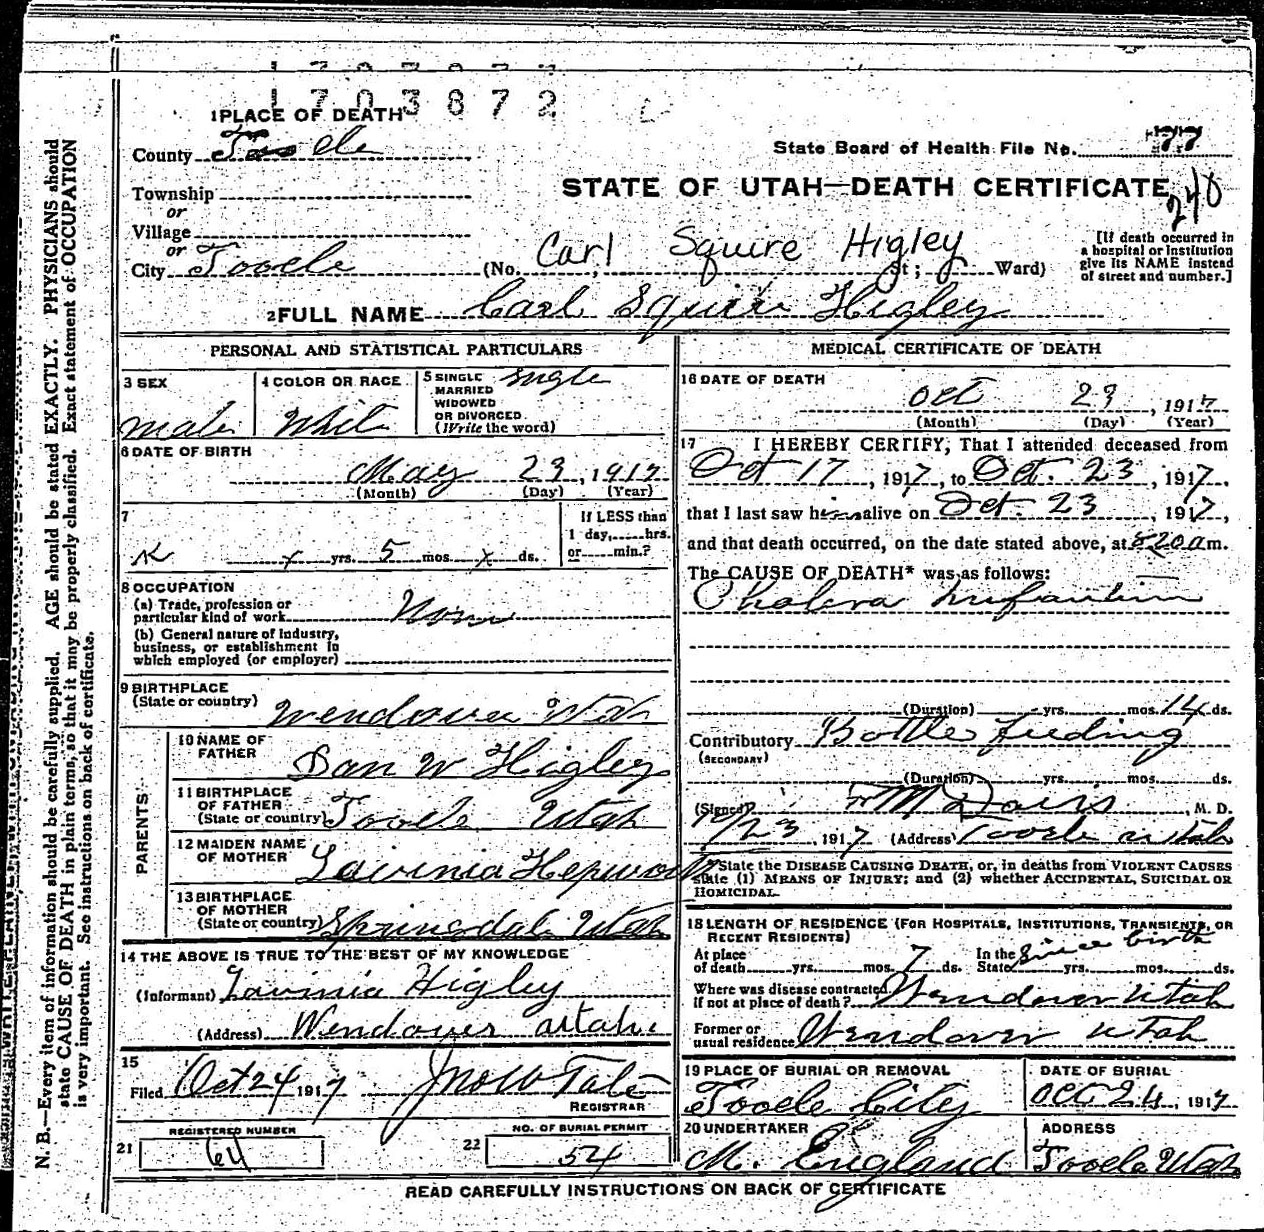 1703872
1 PLACE OF DEATH
County Tooele
State Board of Health File No. 77
Township
STATE OF UTAH—DEATH CERTIFICATE
240
or
Village
or
City Tooele (No. Carl Squire Higley St; Ward)
[If death occurred in
a hospital or institution
give its NAME instead
of street and number.]
2 FULL NAME Carl Squire Higley
PERSONAL AND STATISTICAL PARTICULARS
3 SEX
male
4 COLOR OR RACE
White
5 SINGLE
MARRIED
WIDOWED
OR DIVORCED
(Write the word)
Single
6 DATE OF BIRTH
May 23, 1917
(Month) (Day) (Year)
7
x yrs. 5 mos. x ds.
If LESS than
1 day, hrs.
or min.?
8 OCCUPATION
(a) Trade, profession or
particular kind of work None
(b) General nature of industry,
business, or establishment in
which employed (or employer)
9 BIRTHPLACE
(State or country) Wendover Utah
PARENTS
10 NAME OF
FATHER Dan W Higley
11 BIRTHPLACE
OF FATHER
(State or country) Tooele Utah
12 MAIDEN NAME
OF MOTHER Lavinia Hepworth
13 BIRTHPLACE
OF MOTHER
(State or country) Springdale Utah
14 THE ABOVE IS TRUE TO THE BEST OF MY KNOWLEDGE
(Informant) Lavinia Higley
(Address) Wendover Utah
15
Filed Oct 24 1917 Jno W Tate
REGISTRAR
21 REGISTERED NUMBER
64
22 NO. OF BURIAL PERMIT
54
MEDICAL CERTIFICATE OF DEATH
16 DATE OF DEATH
Oct 23, 1917
(Month) (Day) (Year)
17 I HEREBY CERTIFY, That I attended deceased from
Oct 17, 1917, to Oct. 23, 1917,
that I last saw him alive on Oct. 23, 1917,
and that death occurred, on the date stated above, at 820 a m.
The CAUSE OF DEATH* was as follows:
Cholera Infantum
(Duration) yrs. mos. 14 ds.
Contributory Bottle Feeding
(SECONDARY)
(Duration) yrs. mos. ds.
(Signed) M Davis, M. D.
1917 (Address) Tooele Utah
*State the DISEASE CAUSING DEATH, or, in deaths from VIOLENT CAUSES
state (1) MEANS OF INJURY; and (2) whether ACCIDENTAL, SUICIDAL OR
HOMICIDAL.
18 LENGTH OF RESIDENCE (FOR HOSPITALS, INSTITUTIONS, TRANSIENTS, OR
RECENT RESIDENTS)
At place
of death yrs. mos. 7 ds.
In the
State since birth yrs. mos. ds.
Where was disease contracted
if not at place of death? Wendover Utah
Former or
usual residence Wendover Utah
19 PLACE OF BURIAL OR REMOVAL
Tooele City
DATE OF BURIAL
Oct 24, 1917
20 UNDERTAKER
M. England
ADDRESS
Tooele Utah
READ CAREFULLY INSTRUCTIONS ON BACK OF CERTIFICATE
N. B.—Every item of information should be carefully supplied. AGE should be stated EXACTLY. PHYSICIANS should
state CAUSE OF DEATH in plain terms, so that it may be properly classified. Exact statement of OCCUPATION
is very important. See instructions on back of certificate.